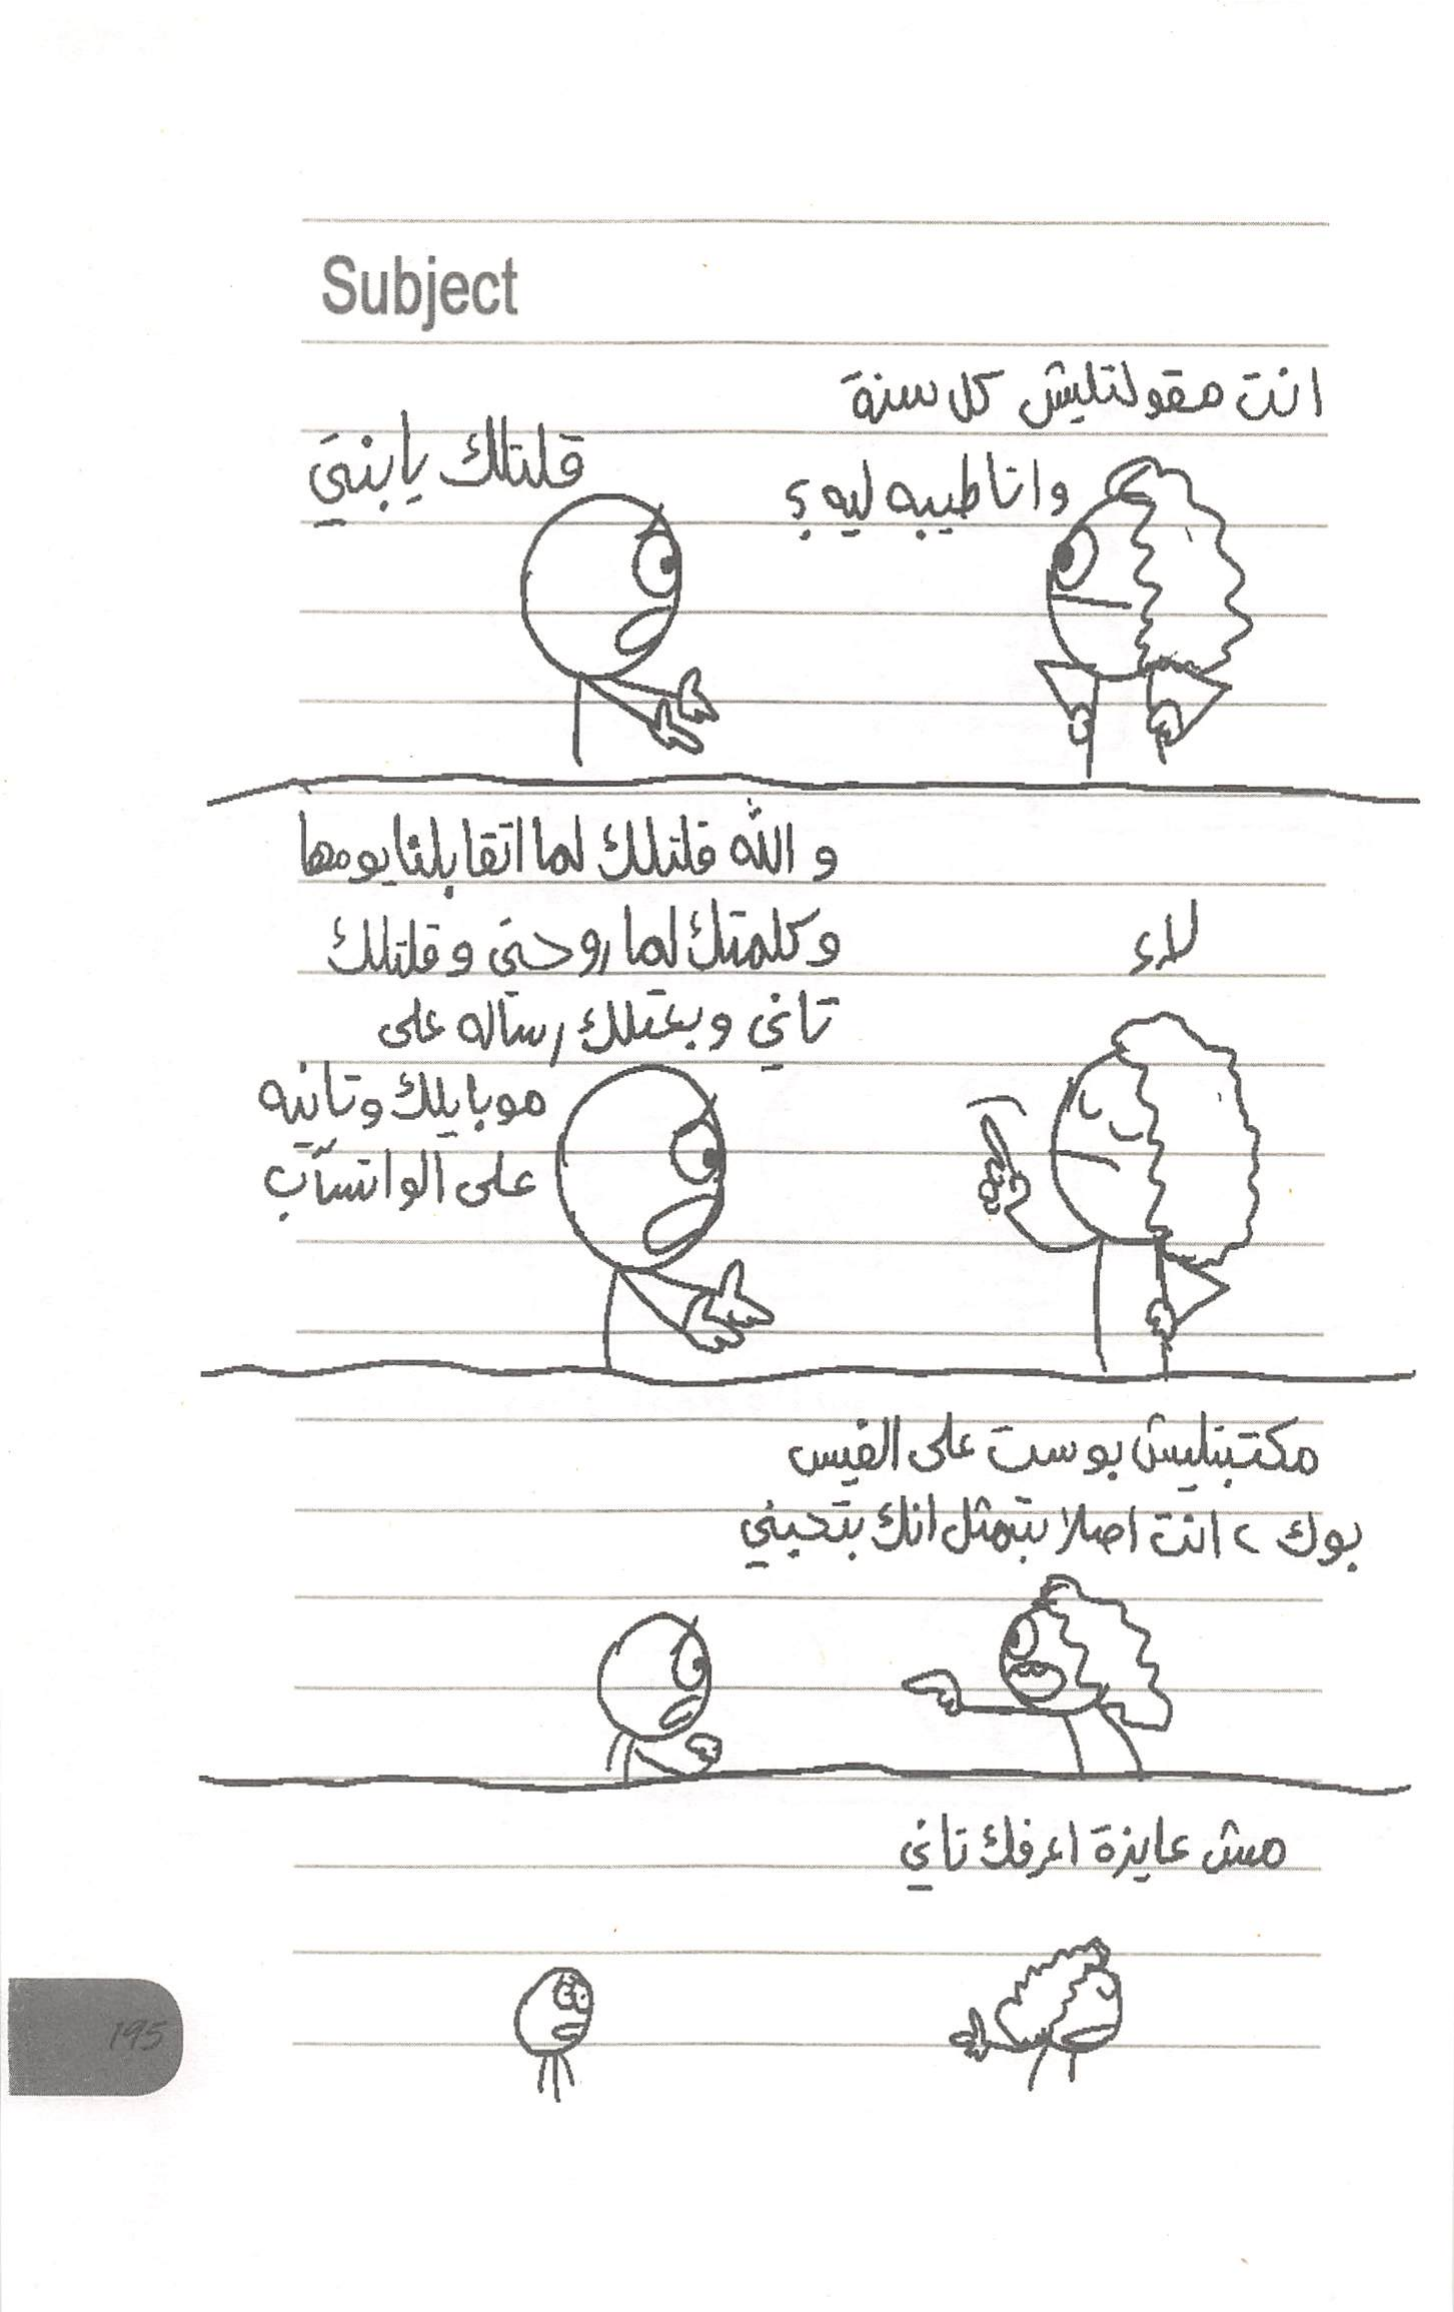 Subject
انت مقولتليش كل سنة
وانا طيبه ليه ؟
قلتلك يابنتي
والله قلتلك لما اتقابلنا يومها
وكلمتك لما روحتي وقلتلك
تاني وبعتلك رساله على
موبايلك وتانيه
على الواتسآب
لاء
مكتبتليش بوست على الفيس
بوك > انت اصلا بتمثل انك بتحبني
مش عايزة اعرفك تاني
195